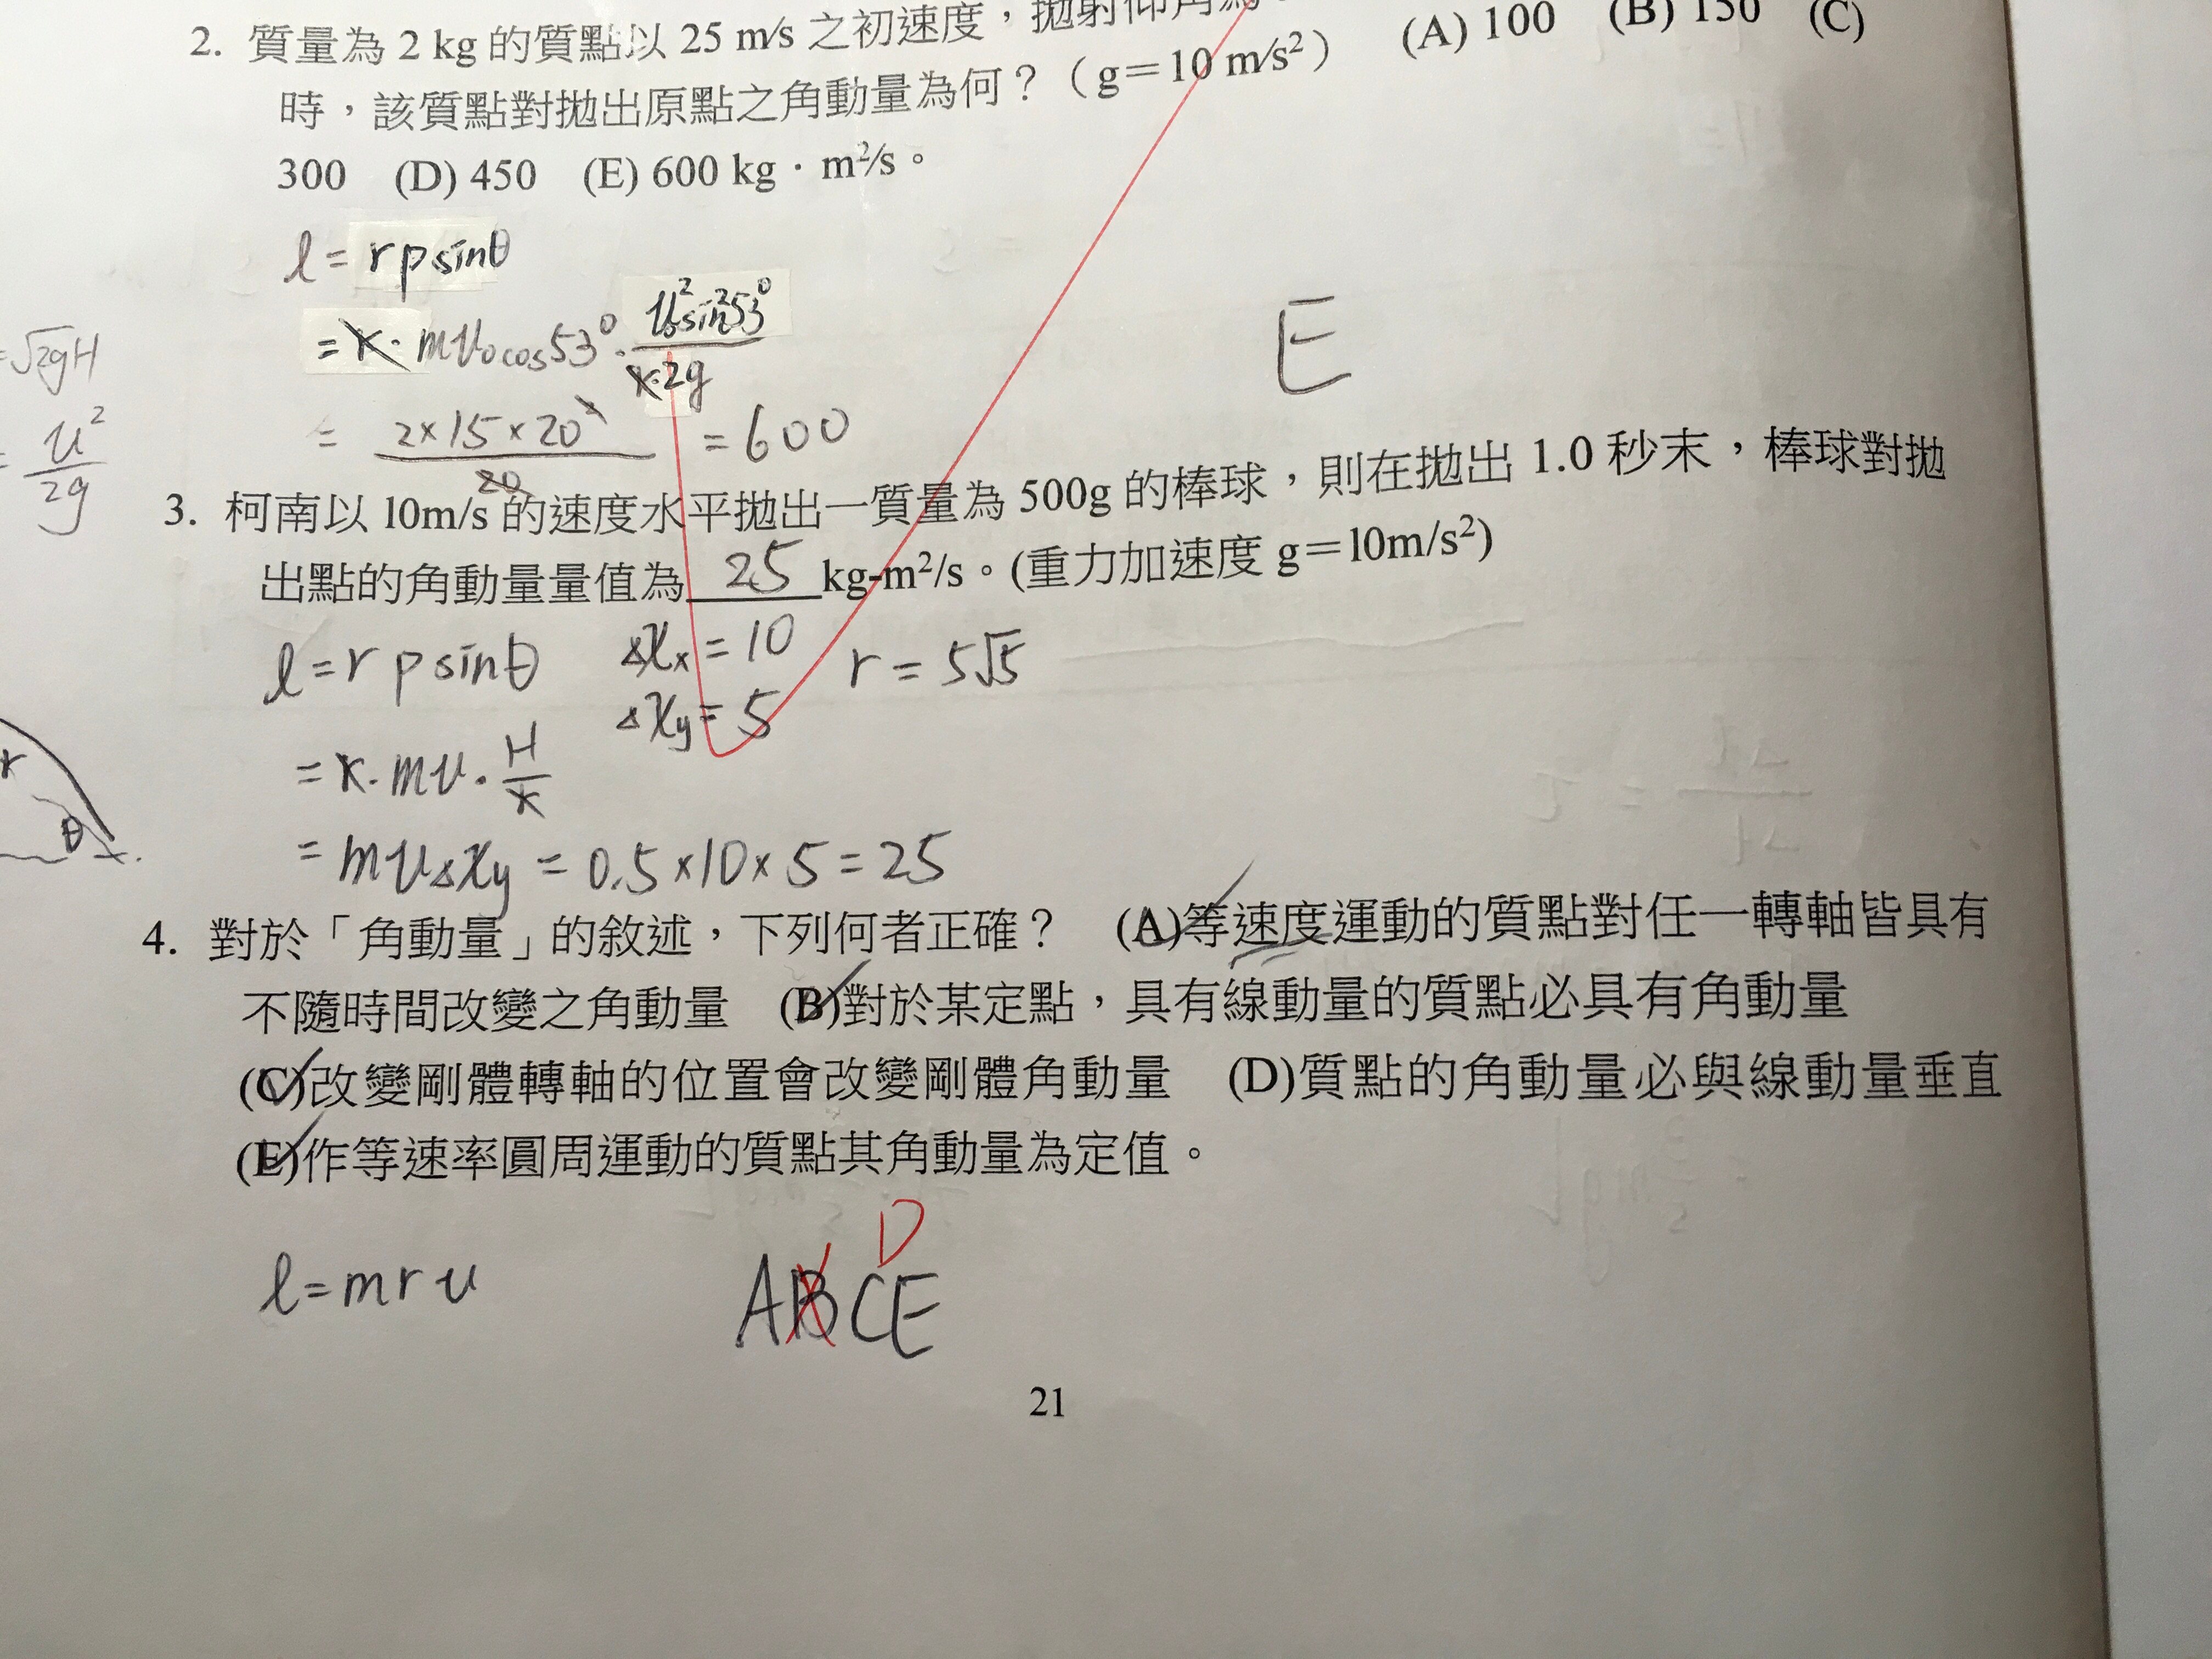 2. 質量為 2 kg 的質點以 25 m/s 之初速度，拋射仰角為
時，該質點對拋出原點之角動量為何？（g＝10 m/s²） (A) 100 (B) 150 (C)
300 (D) 450 (E) 600 kg · m²/s。
l = r p sinθ
= r · m v₀ cos53° · v₀² sin² 53° / r · 2g
= 2×15×20² / 20 = 600
E
= √2gH
= v² / 2g
3. 柯南以 10m/s 的速度水平拋出一質量為 500g 的棒球，則在拋出 1.0 秒末，棒球對拋
出點的角動量量值為 25 kg-m²/s。(重力加速度 g＝10m/s²)
l = r p sinθ Δxₓ = 10 r = 5√5
Δx_y = 5
= r · m v · H / r
= m v Δx_y = 0.5 × 10 × 5 = 25
r
θ
4. 對於「角動量」的敘述，下列何者正確？ (A)等速度運動的質點對任一轉軸皆具有
不隨時間改變之角動量 (B)對於某定點，具有線動量的質點必具有角動量
(C)改變剛體轉軸的位置會改變剛體角動量 (D)質點的角動量必與線動量垂直
(E)作等速率圓周運動的質點其角動量為定值。
D
l = m r v ABCE
21